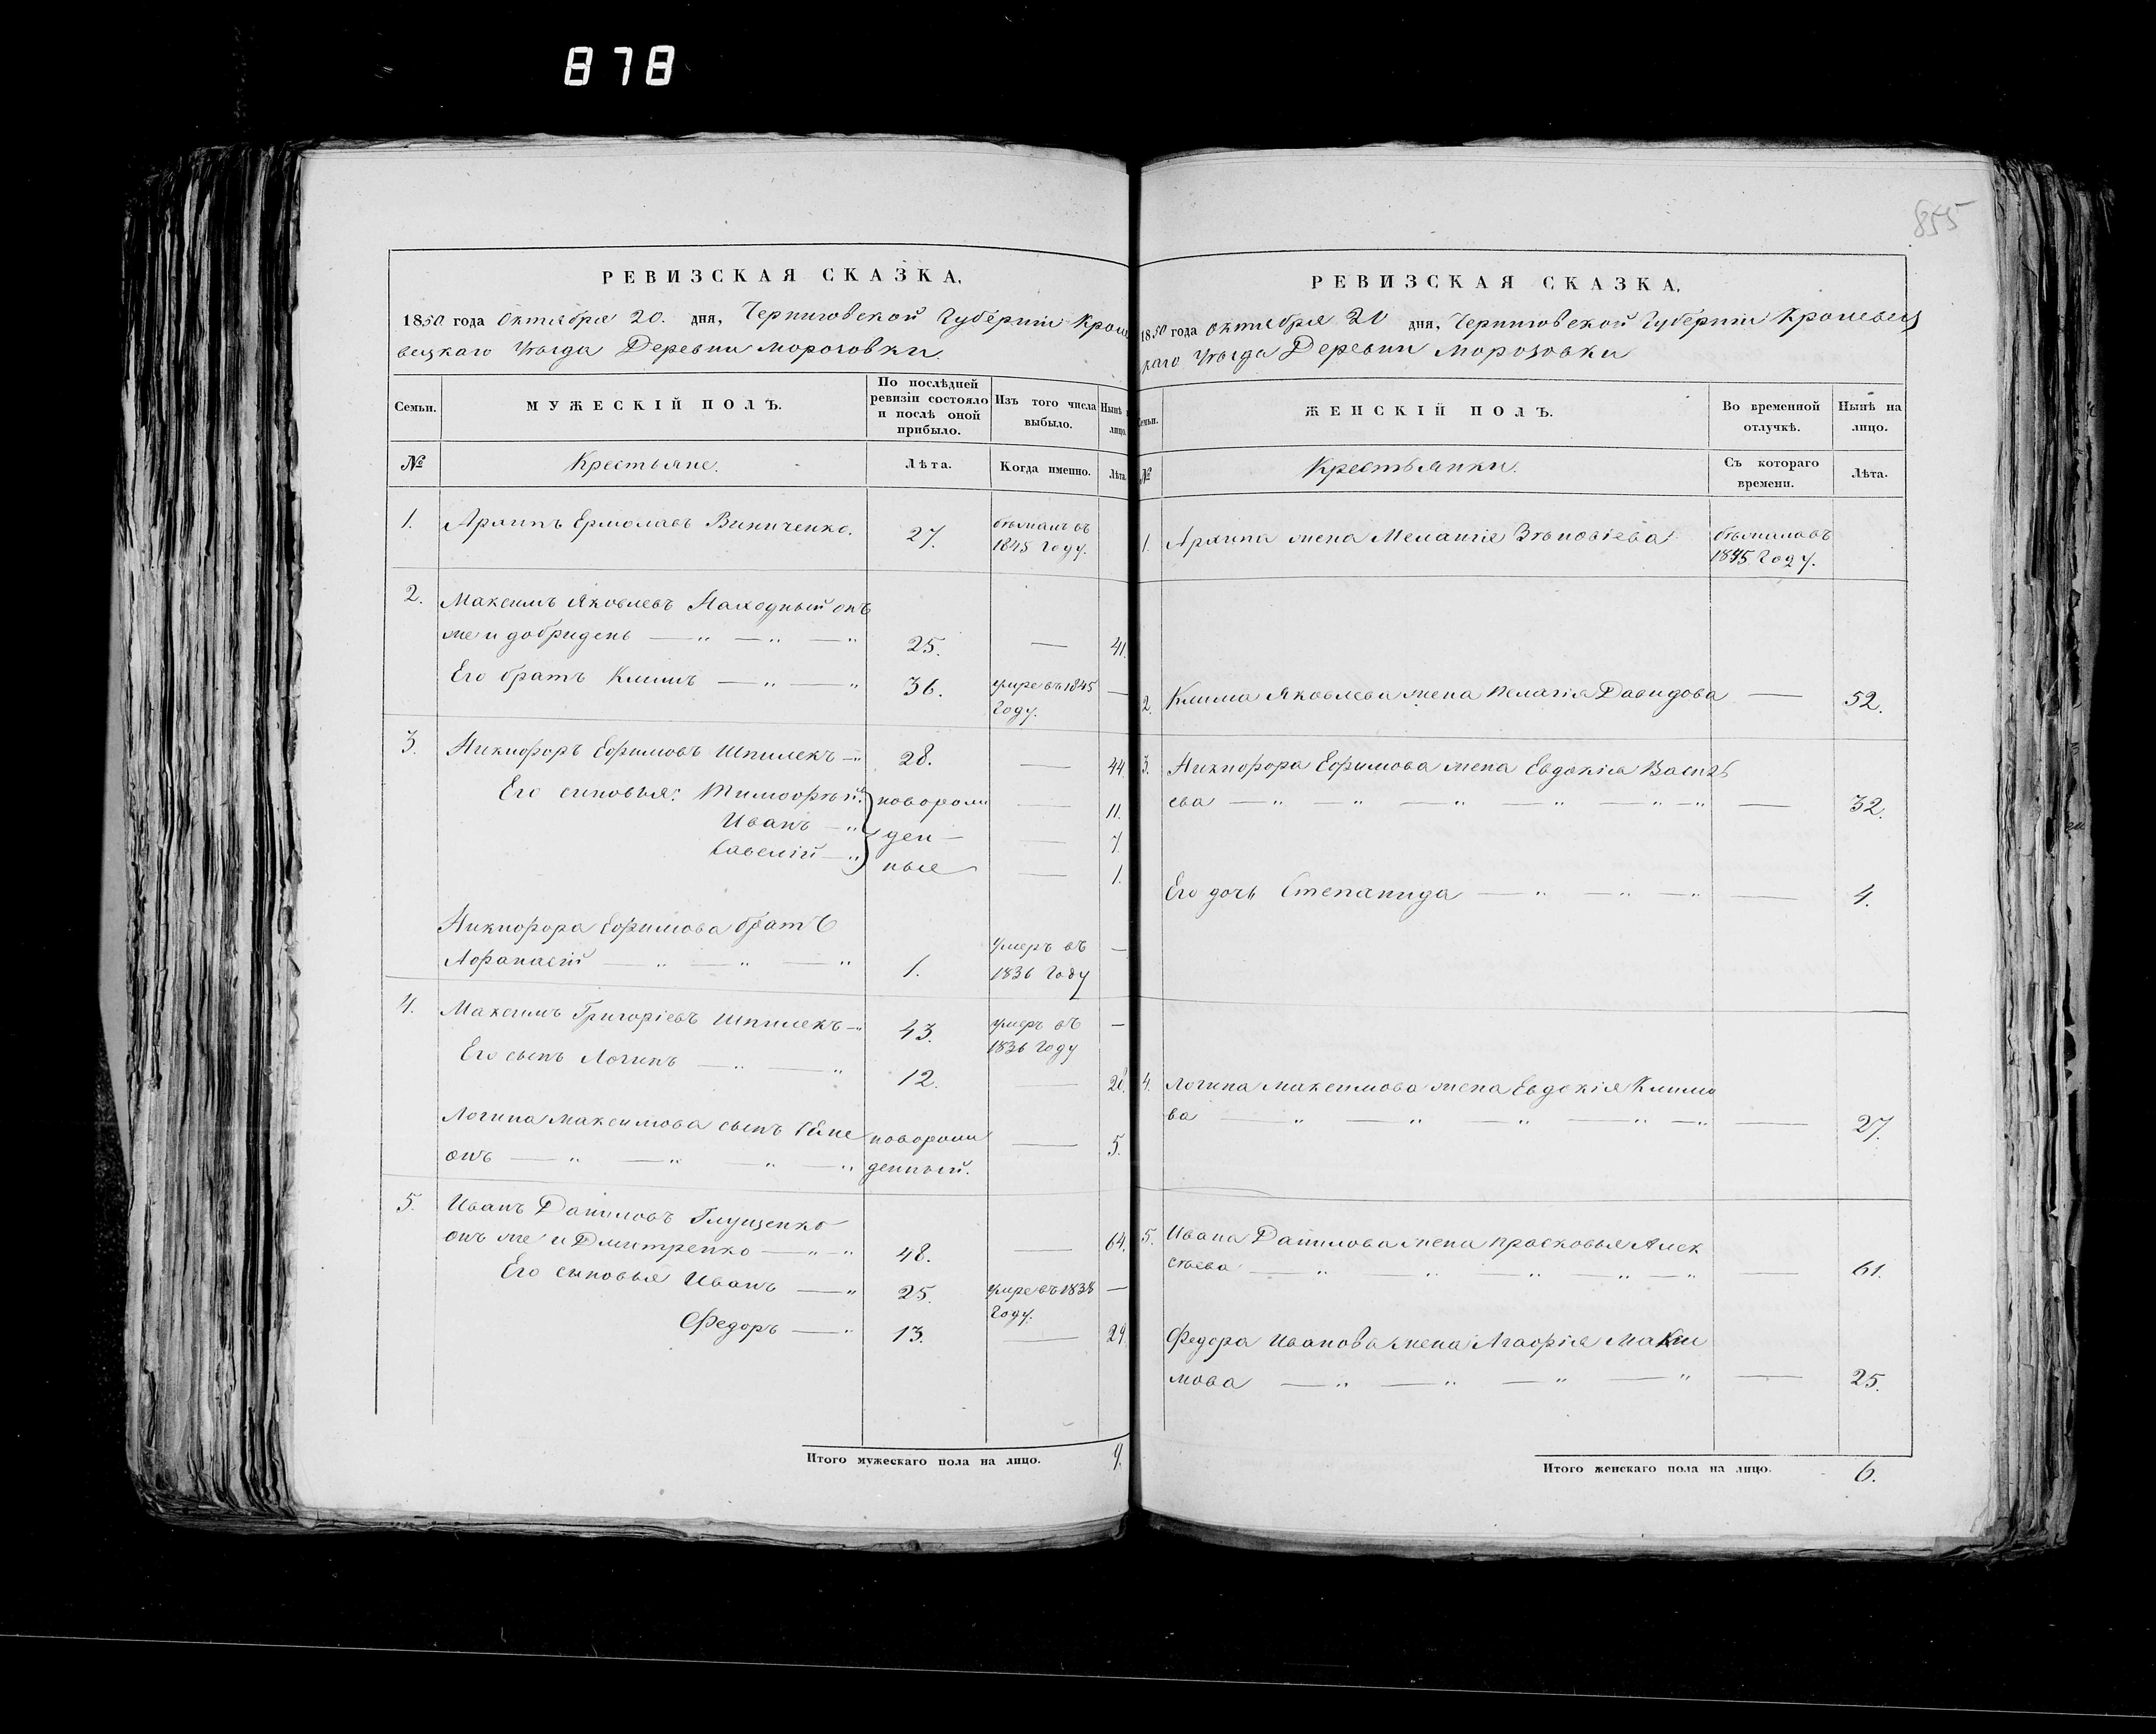 878
855
РЕВИЗСКАЯ СКАЗКА.
1850 года Октября 20. дня, Черниговской Губерніи Кроле
вецкаго Уѣзда Деревни Морозовки.
Семьи.
МУЖЕСКІЙ ПОЛЪ.
По послѣдней
ревизіи состояло
и послѣ оной
прибыло.
Изъ того числа
выбыло.
Нынѣ
лицо.
№
Крестьяне.
Лѣта.
Когда именно.
Лѣта.
1. Архипъ Ермолаевъ Виниченко. 27. бѣжалъ въ
1845 году.
2. Максимъ Яковлевъ Находный онъ
же и добридень 25. — 41.
Его братъ Климъ 36. умре въ 1845 —
году.
3. Никифоръ Ефимовъ Шпилекъ 28. — 44.
Его сыновья: Тимофѣй новорож — 11.
Иванъ ден — 7.
Савелій ные — 1.
Никифора Ефимова братъ
Афанасій 1. умеръ въ —
1836 году
4. Максимъ Григоріевъ Шпилекъ 43. умеръ въ —
1836 году
Его сынъ Логинъ 12. — 28.
Логина Максимова сынъ Симе новорож — 5.
онъ денный.
5. Иванъ Даниловъ Глущенко
онъ же и Дмитренко 48. — 64.
Его сыновья Иванъ 25. умре въ 1838 —
году.
Федоръ 13. — 29.
Итого мужескаго пола на лицо. 9.
РЕВИЗСКАЯ СКАЗКА.
1850 года октября 20 дня, Черниговской Губерніи Кролевец
каго Уѣзда Деревни Морозовки
Семьи.
ЖЕНСКІЙ ПОЛЪ.
Во временной
отлучкѣ.
Нынѣ на
лицо.
№
Крестьянки.
Съ котораго
времени.
Лѣта.
1. Архипа жена Меланія Зѣновіева бѣжила въ
1845 году.
2. Клима Яковлева жена Пелагія Давидова — 52.
3. Никифора Ефимова жена Евдокія Василь
ева — 32.
Его дочь Степанида — 4.
4. Логина Максимова жена Евдокія Климо
ва — 27.
5. Ивана Данилова жена Прасковья Алек
сѣева — 61.
Федора Иванова жена Агафія Макси
мова — 25.
Итого женскаго пола на лицо. 6.